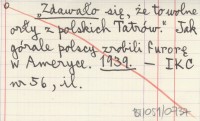 „Zdawało się, że to wolne
orły z polskich Tatrów." Jak
górale polscy zrobili furorę
w Ameryce. 1939. — IKC
nr 56, il.